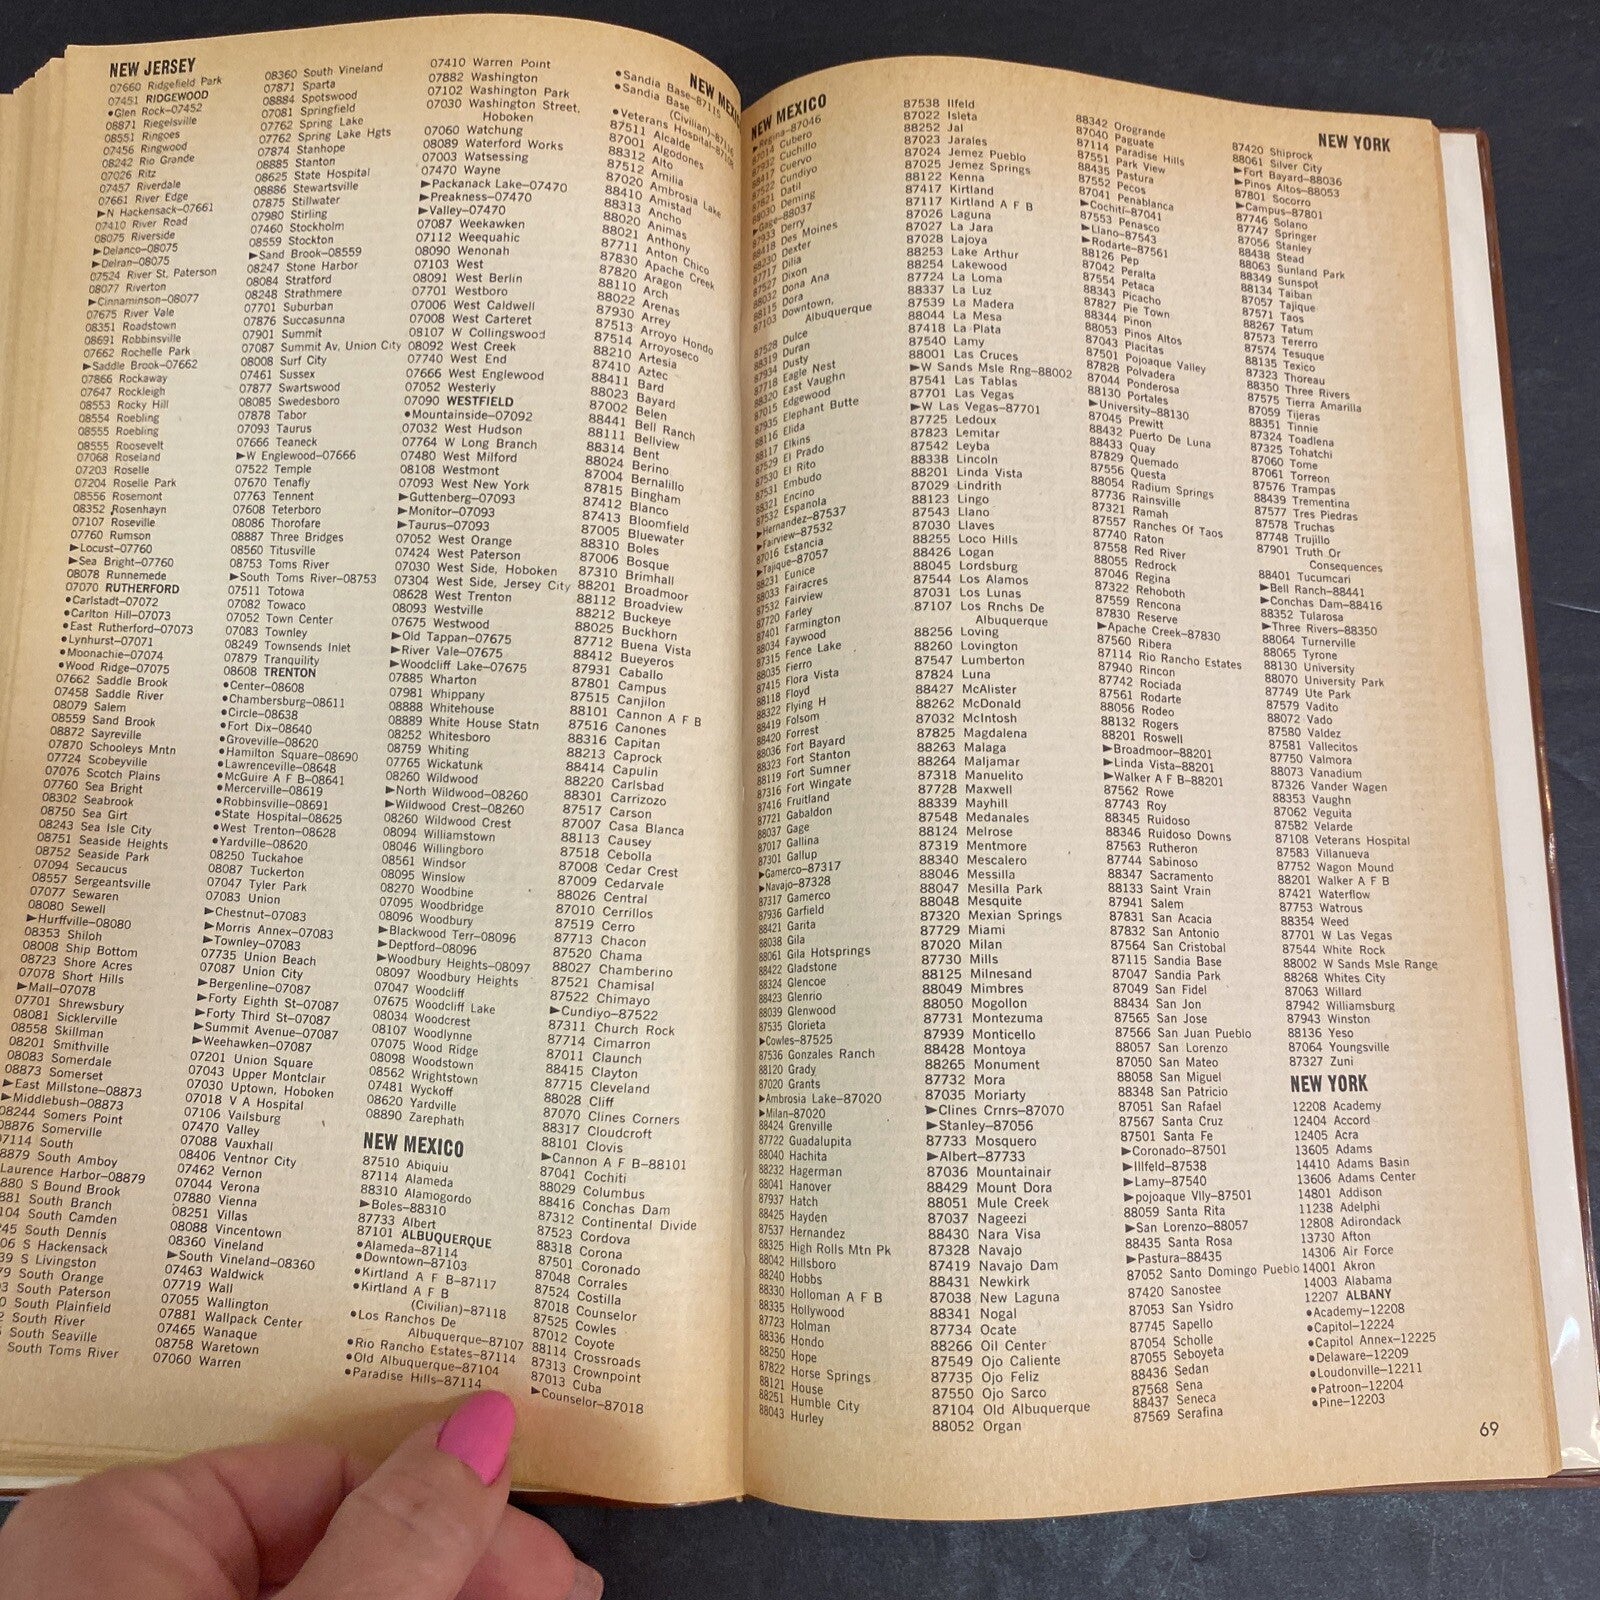 NEW JERSEY
07660 Ridgefield Park
07451 RIDGEWOOD
•Glen Rock–07452
08871 Riegelsville
08551 Ringoes
07456 Ringwood
08242 Rio Grande
07026 Ritz
07457 Riverdale
07661 River Edge
►N Hackensack–07661
07410 River Road
08075 Riverside
►Delanco–08075
►Delran–08075
07524 River St, Paterson
08077 Riverton
►Cinnaminson–08077
07675 River Vale
08351 Roadstown
08691 Robbinsville
07662 Rochelle Park
►Saddle Brook–07662
07866 Rockaway
07647 Rockleigh
08553 Rocky Hill
08554 Roebling
08555 Roebling
08555 Roosevelt
07068 Roseland
07203 Roselle
07204 Roselle Park
08556 Rosemont
08352 Rosenhayn
07107 Roseville
07760 Rumson
►Locust–07760
►Sea Bright–07760
08078 Runnemede
07070 RUTHERFORD
•Carlstadt–07072
•Carlton Hill–07073
•East Rutherford–07073
•Lynhurst–07071
•Moonachie–07074
•Wood Ridge–07075
07662 Saddle Brook
07458 Saddle River
08079 Salem
08559 Sand Brook
08872 Sayreville
07870 Schooleys Mntn
07724 Scobeyville
07076 Scotch Plains
07760 Sea Bright
08302 Seabrook
08750 Sea Girt
08243 Sea Isle City
08751 Seaside Heights
08752 Seaside Park
07094 Secaucus
08557 Sergeantsville
07077 Sewaren
08080 Sewell
►Hurffville–08080
08353 Shiloh
08008 Ship Bottom
08723 Shore Acres
07078 Short Hills
►Mall–07078
07701 Shrewsbury
08081 Sicklerville
08558 Skillman
08201 Smithville
08083 Somerdale
08873 Somerset
►East Millstone–08873
►Middlebush–08873
08244 Somers Point
08876 Somerville
07114 South
8879 South Amboy
Laurence Harbor–08879
880 S Bound Brook
881 South Branch
104 South Camden
South Dennis
S Hackensack
S Livingston
South Orange
South Paterson
South Plainfield
South River
South Seaville
South Toms River
08360 South Vineland
07871 Sparta
08884 Spotswood
07081 Springfield
07762 Spring Lake
07762 Spring Lake Hgts
07874 Stanhope
08885 Stanton
08625 State Hospital
08886 Stewartsville
07875 Stillwater
07980 Stirling
07460 Stockholm
08559 Stockton
►Sand Brook–08559
08247 Stone Harbor
08084 Stratford
08248 Strathmere
07701 Suburban
07876 Succasunna
07901 Summit
07087 Summit Av, Union City
08008 Surf City
07461 Sussex
07877 Swartswood
08085 Swedesboro
07878 Tabor
07093 Taurus
07666 Teaneck
►W Englewood–07666
07522 Temple
07670 Tenafly
07763 Tennent
07608 Teterboro
08086 Thorofare
08887 Three Bridges
08560 Titusville
08753 Toms River
►South Toms River–08753
07511 Totowa
07082 Towaco
07052 Town Center
07083 Townley
08249 Townsends Inlet
07879 Tranquility
08608 TRENTON
•Center–08608
•Chambersburg–08611
•Circle–08638
•Fort Dix–08640
•Groveville–08620
•Hamilton Square–08690
•Lawrenceville–08648
•McGuire A F B–08641
•Mercerville–08619
•Robbinsville–08691
•State Hospital–08625
•West Trenton–08628
•Yardville–08620
08250 Tuckahoe
08087 Tuckerton
07047 Tyler Park
07083 Union
►Chestnut–07083
►Morris Annex–07083
►Townley–07083
07735 Union Beach
07087 Union City
►Bergenline–07087
►Forty Eighth St–07087
►Forty Third St–07087
►Summit Avenue–07087
►Weehawken–07087
07201 Union Square
07043 Upper Montclair
07030 Uptown, Hoboken
07018 V A Hospital
07106 Vailsburg
07470 Valley
07088 Vauxhall
08406 Ventnor City
07462 Vernon
07044 Verona
07880 Vienna
08251 Villas
08088 Vincentown
08360 Vineland
►South Vineland–08360
07463 Waldwick
07719 Wall
07055 Wallington
07881 Wallpack Center
07465 Wanaque
08758 Waretown
07060 Warren
07410 Warren Point
07882 Washington
07102 Washington Park
07030 Washington Street,
Hoboken
07060 Watchung
08089 Waterford Works
07003 Watsessing
07470 Wayne
►Packanack Lake–07470
►Preakness–07470
►Valley–07470
07087 Weekawken
07112 Weequahic
08090 Wenonah
07103 West
08091 West Berlin
07701 Westboro
07006 West Caldwell
07008 West Carteret
08107 W Collingswood
08092 West Creek
07740 West End
07666 West Englewood
07052 Westerly
07090 WESTFIELD
•Mountainside–07092
07032 West Hudson
07764 W Long Branch
07480 West Milford
08108 Westmont
07093 West New York
►Guttenberg–07093
►Monitor–07093
►Taurus–07093
07052 West Orange
07424 West Paterson
07030 West Side, Hoboken
07304 West Side, Jersey City
08628 West Trenton
08093 Westville
07675 Westwood
►Old Tappan–07675
►River Vale–07675
►Woodcliff Lake–07675
07885 Wharton
07981 Whippany
08888 Whitehouse
08889 White House Statn
08252 Whitesboro
08759 Whiting
07765 Wickatunk
08260 Wildwood
►North Wildwood–08260
►Wildwood Crest–08260
08260 Wildwood Crest
08094 Williamstown
08046 Willingboro
08561 Windsor
08095 Winslow
08270 Woodbine
07095 Woodbridge
08096 Woodbury
►Blackwood Terr–08096
►Deptford–08096
►Woodbury Heights–08097
08097 Woodbury Heights
07047 Woodcliff
07675 Woodcliff Lake
08034 Woodcrest
08107 Woodlynne
07075 Wood Ridge
08098 Woodstown
08562 Wrightstown
07481 Wyckoff
08620 Yardville
08890 Zarephath
NEW MEXICO
87510 Abiquiu
87114 Alameda
88310 Alamogordo
►Boles–88310
87733 Albert
87101 ALBUQUERQUE
•Alameda–87114
•Downtown–87103
•Kirtland A F B–87117
•Kirtland A F B
(Civilian)–87118
•Los Ranchos De
Albuquerque–87107
•Rio Rancho Estates–87114
•Old Albuquerque–87104
•Paradise Hills–87114
NEW MEXI
•Sandia Base–87115
•Sandia Base
(Civilian)–87116
•Veterans Hospital–87108
87511 Alcalde
87001 Algodones
88312 Alto
87512 Amilia
87020 Ambrosia Lake
88410 Amistad
88313 Ancho
88020 Animas
88021 Anthony
87711 Anton Chico
87830 Apache Creek
87820 Aragon
88110 Arch
88022 Arenas
87930 Arrey
87513 Arroyo Hondo
87514 Arroyoseco
88210 Artesia
87410 Aztec
88411 Bard
88023 Bayard
87002 Belen
88441 Bell Ranch
88111 Bellview
88314 Bent
88024 Berino
87004 Bernalillo
87815 Bingham
87412 Blanco
87413 Bloomfield
87005 Bluewater
88310 Boles
87006 Bosque
87310 Brimhall
88201 Broadmoor
88112 Broadview
88212 Buckeye
88025 Buckhorn
87712 Buena Vista
88412 Bueyeros
87931 Caballo
87801 Campus
87515 Canjilon
88101 Cannon A F B
87516 Canones
88316 Capitan
88213 Caprock
88414 Capulin
88220 Carlsbad
88301 Carrizozo
87517 Carson
87007 Casa Blanca
88113 Causey
87518 Cebolla
87008 Cedar Crest
87009 Cedarvale
88026 Central
87010 Cerrillos
87519 Cerro
87713 Chacon
87520 Chama
88027 Chamberino
87521 Chamisal
87522 Chimayo
►Cundiyo–87522
87311 Church Rock
87714 Cimarron
87011 Claunch
88415 Clayton
87715 Cleveland
88028 Cliff
87070 Clines Corners
88317 Cloudcroft
88101 Clovis
►Cannon A F B–88101
87041 Cochiti
88029 Columbus
88416 Conchas Dam
87312 Continental Divide
87523 Cordova
88318 Corona
87501 Coronado
87048 Corrales
87524 Costilla
87018 Counselor
87525 Cowles
87012 Coyote
88114 Crossroads
87313 Crownpoint
87013 Cuba
►Counselor–87018
NEW MEXICO
►Regina–87046
87014 Cubero
87932 Cuchillo
88417 Cuervo
87522 Cundiyo
87821 Datil
88030 Deming
►Gage–88037
87933 Derry
88418 Des Moines
88230 Dexter
87717 Dilia
87527 Dixon
88032 Dona Ana
88115 Dora
87103 Downtown,
Albuquerque
87528 Dulce
88319 Duran
87934 Dusty
87718 Eagle Nest
88320 East Vaughn
87015 Edgewood
87935 Elephant Butte
88116 Elida
88117 Elkins
87529 El Prado
87530 El Rito
87531 Embudo
88321 Encino
87532 Espanola
►Hernandez–87537
►Fairview–87532
87016 Estancia
►Tajique–87057
88231 Eunice
88033 Fairacres
87532 Fairview
87720 Farley
87401 Farmington
88034 Faywood
87315 Fence Lake
88035 Fierro
87415 Flora Vista
88118 Floyd
88322 Flying H
88419 Folsom
88420 Forrest
88036 Fort Bayard
88323 Fort Stanton
88119 Fort Sumner
87316 Fort Wingate
87416 Fruitland
87721 Gabaldon
88037 Gage
87017 Gallina
87301 Gallup
►Gamerco–87317
►Navajo–87328
87317 Gamerco
87936 Garfield
88421 Garita
88038 Gila
88061 Gila Hotsprings
88422 Gladstone
88324 Glencoe
88423 Glenrio
88039 Glenwood
87535 Glorieta
►Cowles–87525
87536 Gonzales Ranch
88120 Grady
87020 Grants
►Ambrosia Lake–87020
►Milan–87020
88424 Grenville
87722 Guadalupita
88040 Hachita
88232 Hagerman
88041 Hanover
87937 Hatch
88425 Hayden
87537 Hernandez
88325 High Rolls Mtn Pk
88042 Hillsboro
88240 Hobbs
88330 Holloman A F B
88335 Hollywood
87723 Holman
88336 Hondo
88250 Hope
87822 Horse Springs
88121 House
88251 Humble City
88043 Hurley
87538 Ilfeld
87022 Isleta
88252 Jal
87023 Jarales
87024 Jemez Pueblo
87025 Jemez Springs
88122 Kenna
87417 Kirtland
87117 Kirtland A F B
87026 Laguna
87027 La Jara
87028 Lajoya
88253 Lake Arthur
88254 Lakewood
87724 La Loma
88337 La Luz
87539 La Madera
88044 La Mesa
87418 La Plata
87540 Lamy
88001 Las Cruces
►W Sands Msle Rng–88002
87541 Las Tablas
87701 Las Vegas
►W Las Vegas–87701
87725 Ledoux
87823 Lemitar
87542 Leyba
88338 Lincoln
88201 Linda Vista
87029 Lindrith
88123 Lingo
87543 Llano
87030 Llaves
88255 Loco Hills
88426 Logan
88045 Lordsburg
87544 Los Alamos
87031 Los Lunas
87107 Los Rnchs De
Albuquerque
88256 Loving
88260 Lovington
87547 Lumberton
87824 Luna
88427 McAlister
88262 McDonald
87032 McIntosh
87825 Magdalena
88263 Malaga
88264 Maljamar
87318 Manuelito
87728 Maxwell
88339 Mayhill
87548 Medanales
88124 Melrose
87319 Mentmore
88340 Mescalero
88046 Messilla
88047 Mesilla Park
88048 Mesquite
87320 Mexian Springs
87729 Miami
87020 Milan
87730 Mills
88125 Milnesand
88049 Mimbres
88050 Mogollon
87731 Montezuma
87939 Monticello
88428 Montoya
88265 Monument
87732 Mora
87035 Moriarty
►Clines Crnrs–87070
►Stanley–87056
87733 Mosquero
►Albert–87733
87036 Mountainair
88429 Mount Dora
88051 Mule Creek
87037 Nageezi
88430 Nara Visa
87328 Navajo
87419 Navajo Dam
88431 Newkirk
87038 New Laguna
88341 Nogal
87734 Ocate
88266 Oil Center
87549 Ojo Caliente
87735 Ojo Feliz
87550 Ojo Sarco
87104 Old Albuquerque
88052 Organ
88342 Orogrande
87040 Paguate
87114 Paradise Hills
87551 Park View
88435 Pastura
87552 Pecos
87041 Penablanca
►Cochiti–87041
87553 Penasco
►Llano–87543
►Rodarte–87561
88126 Pep
87042 Peralta
87554 Petaca
88343 Picacho
87827 Pie Town
88344 Pinon
88053 Pinos Altos
87043 Placitas
87501 Pojoaque Valley
87828 Polvadera
87044 Ponderosa
88130 Portales
►University–88130
87045 Prewitt
88432 Puerto De Luna
88433 Quay
87829 Quemado
87556 Questa
88054 Radium Springs
87736 Rainsville
87321 Ramah
87557 Ranches Of Taos
87740 Raton
87558 Red River
88055 Redrock
87046 Regina
87322 Rehoboth
87559 Rencona
87830 Reserve
►Apache Creek–87830
87560 Ribera
87114 Rio Rancho Estates
87940 Rincon
87742 Rociada
87561 Rodarte
88056 Rodeo
88132 Rogers
88201 Roswell
►Broadmoor–88201
►Linda Vista–88201
►Walker A F B–88201
87562 Rowe
87743 Roy
88345 Ruidoso
88346 Ruidoso Downs
87563 Rutheron
87744 Sabinoso
88347 Sacramento
88133 Saint Vrain
87941 Salem
87831 San Acacia
87832 San Antonio
87564 San Cristobal
87115 Sandia Base
87047 Sandia Park
87049 San Fidel
88434 San Jon
87565 San Jose
87566 San Juan Pueblo
88057 San Lorenzo
87050 San Mateo
88058 San Miguel
88348 San Patricio
87051 San Rafael
87567 Santa Cruz
87501 Santa Fe
►Coronado–87501
►Illfeld–87538
►Lamy–87540
►pojoaque Vlly–87501
88059 Santa Rita
►San Lorenzo–88057
88435 Santa Rosa
►Pastura–88435
87052 Santo Domingo Pueblo
87420 Sanostee
87053 San Ysidro
87745 Sapello
87054 Scholle
87055 Seboyeta
88436 Sedan
87568 Sena
88437 Seneca
87569 Serafina
NEW YORK
87420 Shiprock
88061 Silver City
►Fort Bayard–88036
►Pinos Altos–88053
87801 Socorro
►Campus–87801
87746 Solano
87747 Springer
87056 Stanley
88438 Stead
88063 Sunland Park
88349 Sunspot
88134 Taiban
87057 Tajique
87571 Taos
88267 Tatum
87573 Tererro
87574 Tesuque
88135 Texico
87323 Thoreau
88350 Three Rivers
87575 Tierra Amarilla
87059 Tijeras
88351 Tinnie
87324 Toadlena
87325 Tohatchi
87060 Tome
87061 Torreon
87576 Trampas
88439 Trementina
87577 Tres Piedras
87578 Truchas
87748 Trujillo
87901 Truth Or
Consequences
88401 Tucumcari
►Bell Ranch–88441
►Conchas Dam–88416
88352 Tularosa
►Three Rivers–88350
88064 Turnerville
88065 Tyrone
88130 University
88070 University Park
87749 Ute Park
87579 Vadito
88072 Vado
87580 Valdez
87581 Vallecitos
87750 Valmora
88073 Vanadium
87326 Vander Wagen
88353 Vaughn
87062 Veguita
87582 Velarde
87108 Veterans Hospital
87583 Villanueva
87752 Wagon Mound
88201 Walker A F B
87421 Waterflow
87753 Watrous
88354 Weed
87701 W Las Vegas
87544 White Rock
88002 W Sands Msle Range
88268 Whites City
87063 Willard
87942 Williamsburg
87943 Winston
88136 Yeso
87064 Youngsville
87327 Zuni
NEW YORK
12208 Academy
12404 Accord
12405 Acra
13605 Adams
14410 Adams Basin
13606 Adams Center
14801 Addison
11238 Adelphi
12808 Adirondack
13730 Afton
14306 Air Force
14001 Akron
14003 Alabama
12207 ALBANY
•Academy–12208
•Capitol–12224
•Capitol Annex–12225
•Delaware–12209
•Loudonville–12211
•Patroon–12204
•Pine–12203
69